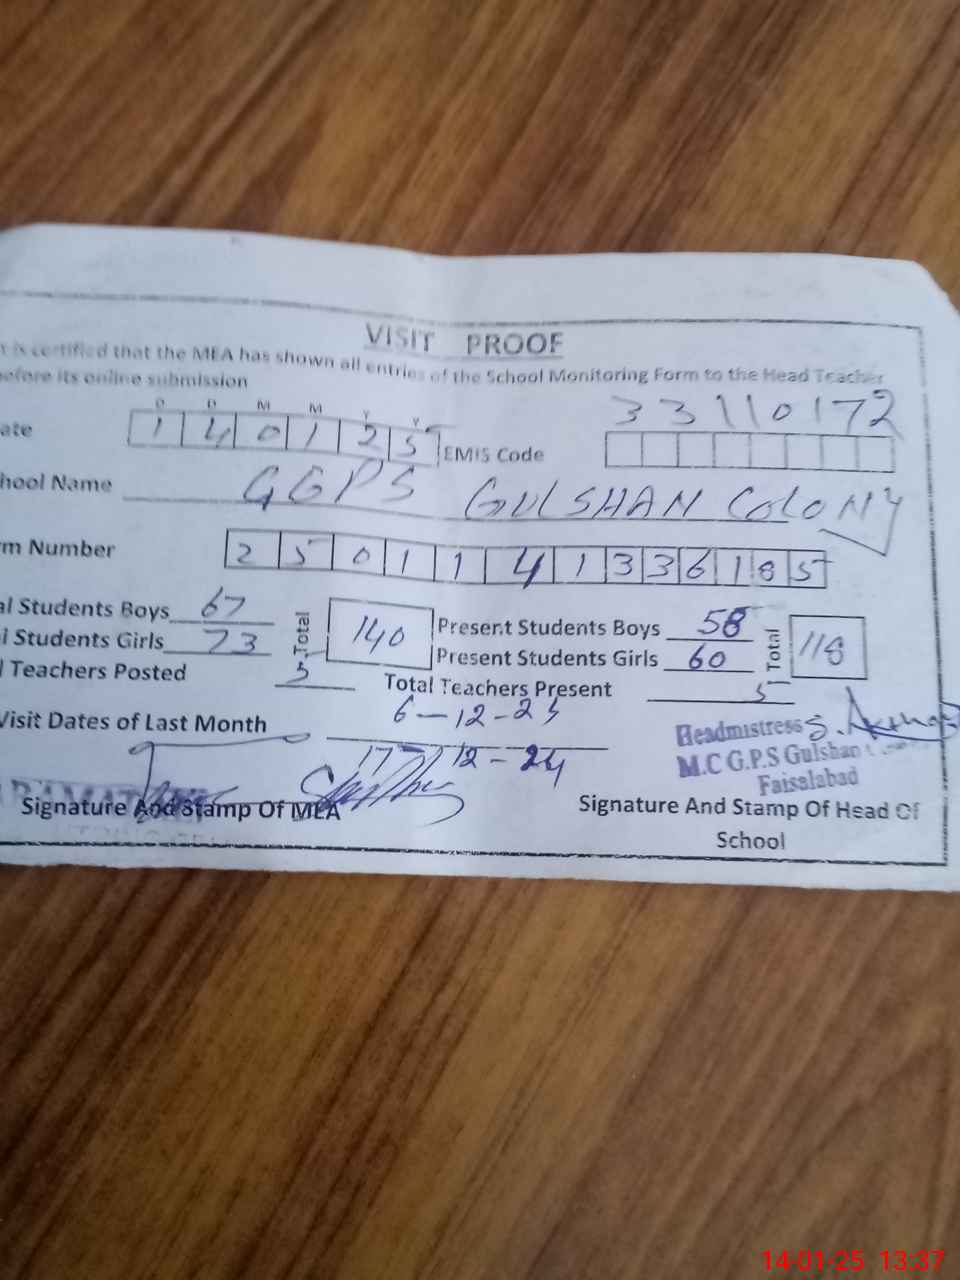 VISIT PROOF
is certified that the MEA has shown all entries of the School Monitoring Form to the Head Teacher
before its online submission
D D M M Y Y
ate 1 4 0 1 2 5 EMIS Code 33110172
hool Name GGPS GULSHAN COLONY
rm Number 2 5 0 1 1 4 1 3 3 6 1 8 5
al Students Boys 67 Total 140 Present Students Boys 58 Total 118
l Students Girls 73 Present Students Girls 60
l Teachers Posted 5 Total Teachers Present 5
Visit Dates of Last Month 6-12-25
17-12-24
Headmistress
M.C G.P.S Gulshan
Faisalabad
Signature And Stamp Of MEA Signature And Stamp Of Head Of
School
14-01-25 13:37